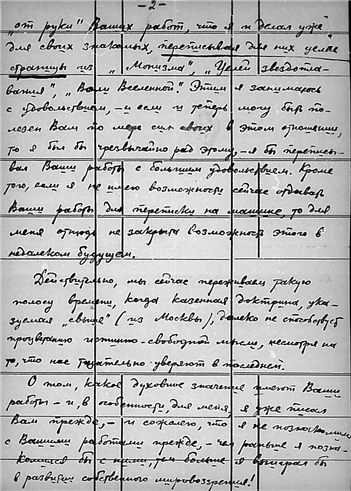 -2-
„от руки" Ваших работ, что я и делал уже
для своих знакомых, переписывая для них целые
страницы из „Монизма", „Целей звездопла-
вания", „Воли Вселенной". Этим я занимаюсь
с удовольствием, – и если и теперь могу быть по-
лезен Вам по мере сил своих в этом отношении,
то я был бы чрезвычайно рад этому, – я бы переписы-
вал Ваши работы с большим удовольствием. Кроме
того, если я не имею возможности сейчас отдавать
Ваши работы для переписки на машинке, то для
меня отнюдь не закрыта возможность этого в
недалеком будущем.
Действительно, мы сейчас переживаем такую
полосу времени, когда казенная доктрина, ука-
зуемая „свыше" (из Москвы), далеко не способствует
процветанию истинно-свободной мысли, несмотря на
то, что нас тщательно уверяют в последней.
О том, какое духовное значение имеют Ваши
работы – и, в особенности, для меня, я уже писал
Вам прежде, – и сожалею, что я не познакомился
с Вашими работами прежде, – чем раньше я позна-
комился бы с ними, тем больше я выиграл бы
в развитии собственного мировоззрения!